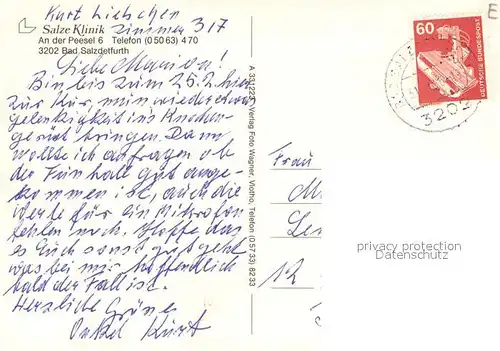 Kurt Liebchen
Zimmer 317
Salze Klinik
An der Peesel 6 Telefon (0 50 63) 4 70
3202 Bad Salzdetfurth
Liebe Marion!
Bin bis zum 25.2. hier
zur Kur, um wieder etwas
gelenkigkeit ins Knochen-
gerüst bringen. Dann
wollte ich anfragen ob
der Fünhall gut ange-
kommen ist, auch die
Werte für ein Mikrofon
fehlen noch. Hoffe das
es Euch sonst gut geht
was bei mir hoffendlich
bald der Fall ist.
Herzliche Grüße
Onkel Kurt
A 331223 Verlag Foto Wagner, Vlotho, Telefon (0 57 33) 82 33
60
DEUTSCHE BUNDESPOST
3202
E
Frau
12
privacy protection
Datenschutz